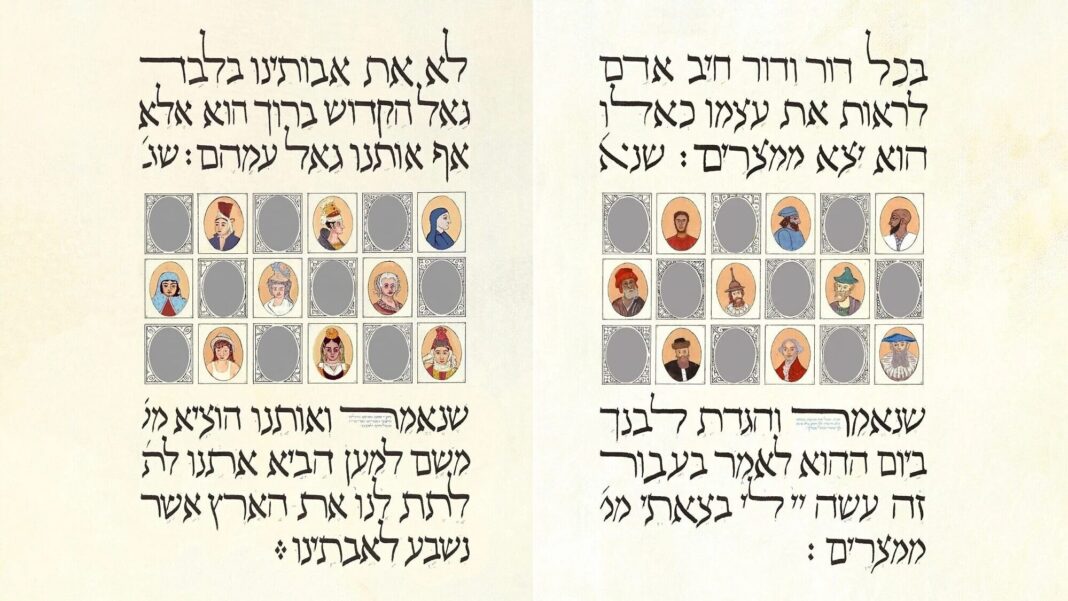 בכל דור ודור חיב אדם
לראות את עצמו כאלו
הוא יצא ממצרים : שנא
שנאמר והגדת לבנך
ביום ההוא לאמר בעבור
זה עשה יי לי בצאתי ממ
ממצרים :
לא את אבותינו בלבד
גאל הקדוש ברוך הוא אלא
אף אותנו גאל עמהם : שנ
שנאמר ואותנו הוציא מש
משם למען הביא אתנו לת
לתת לנו את הארץ אשר
נשבע לאבתינו